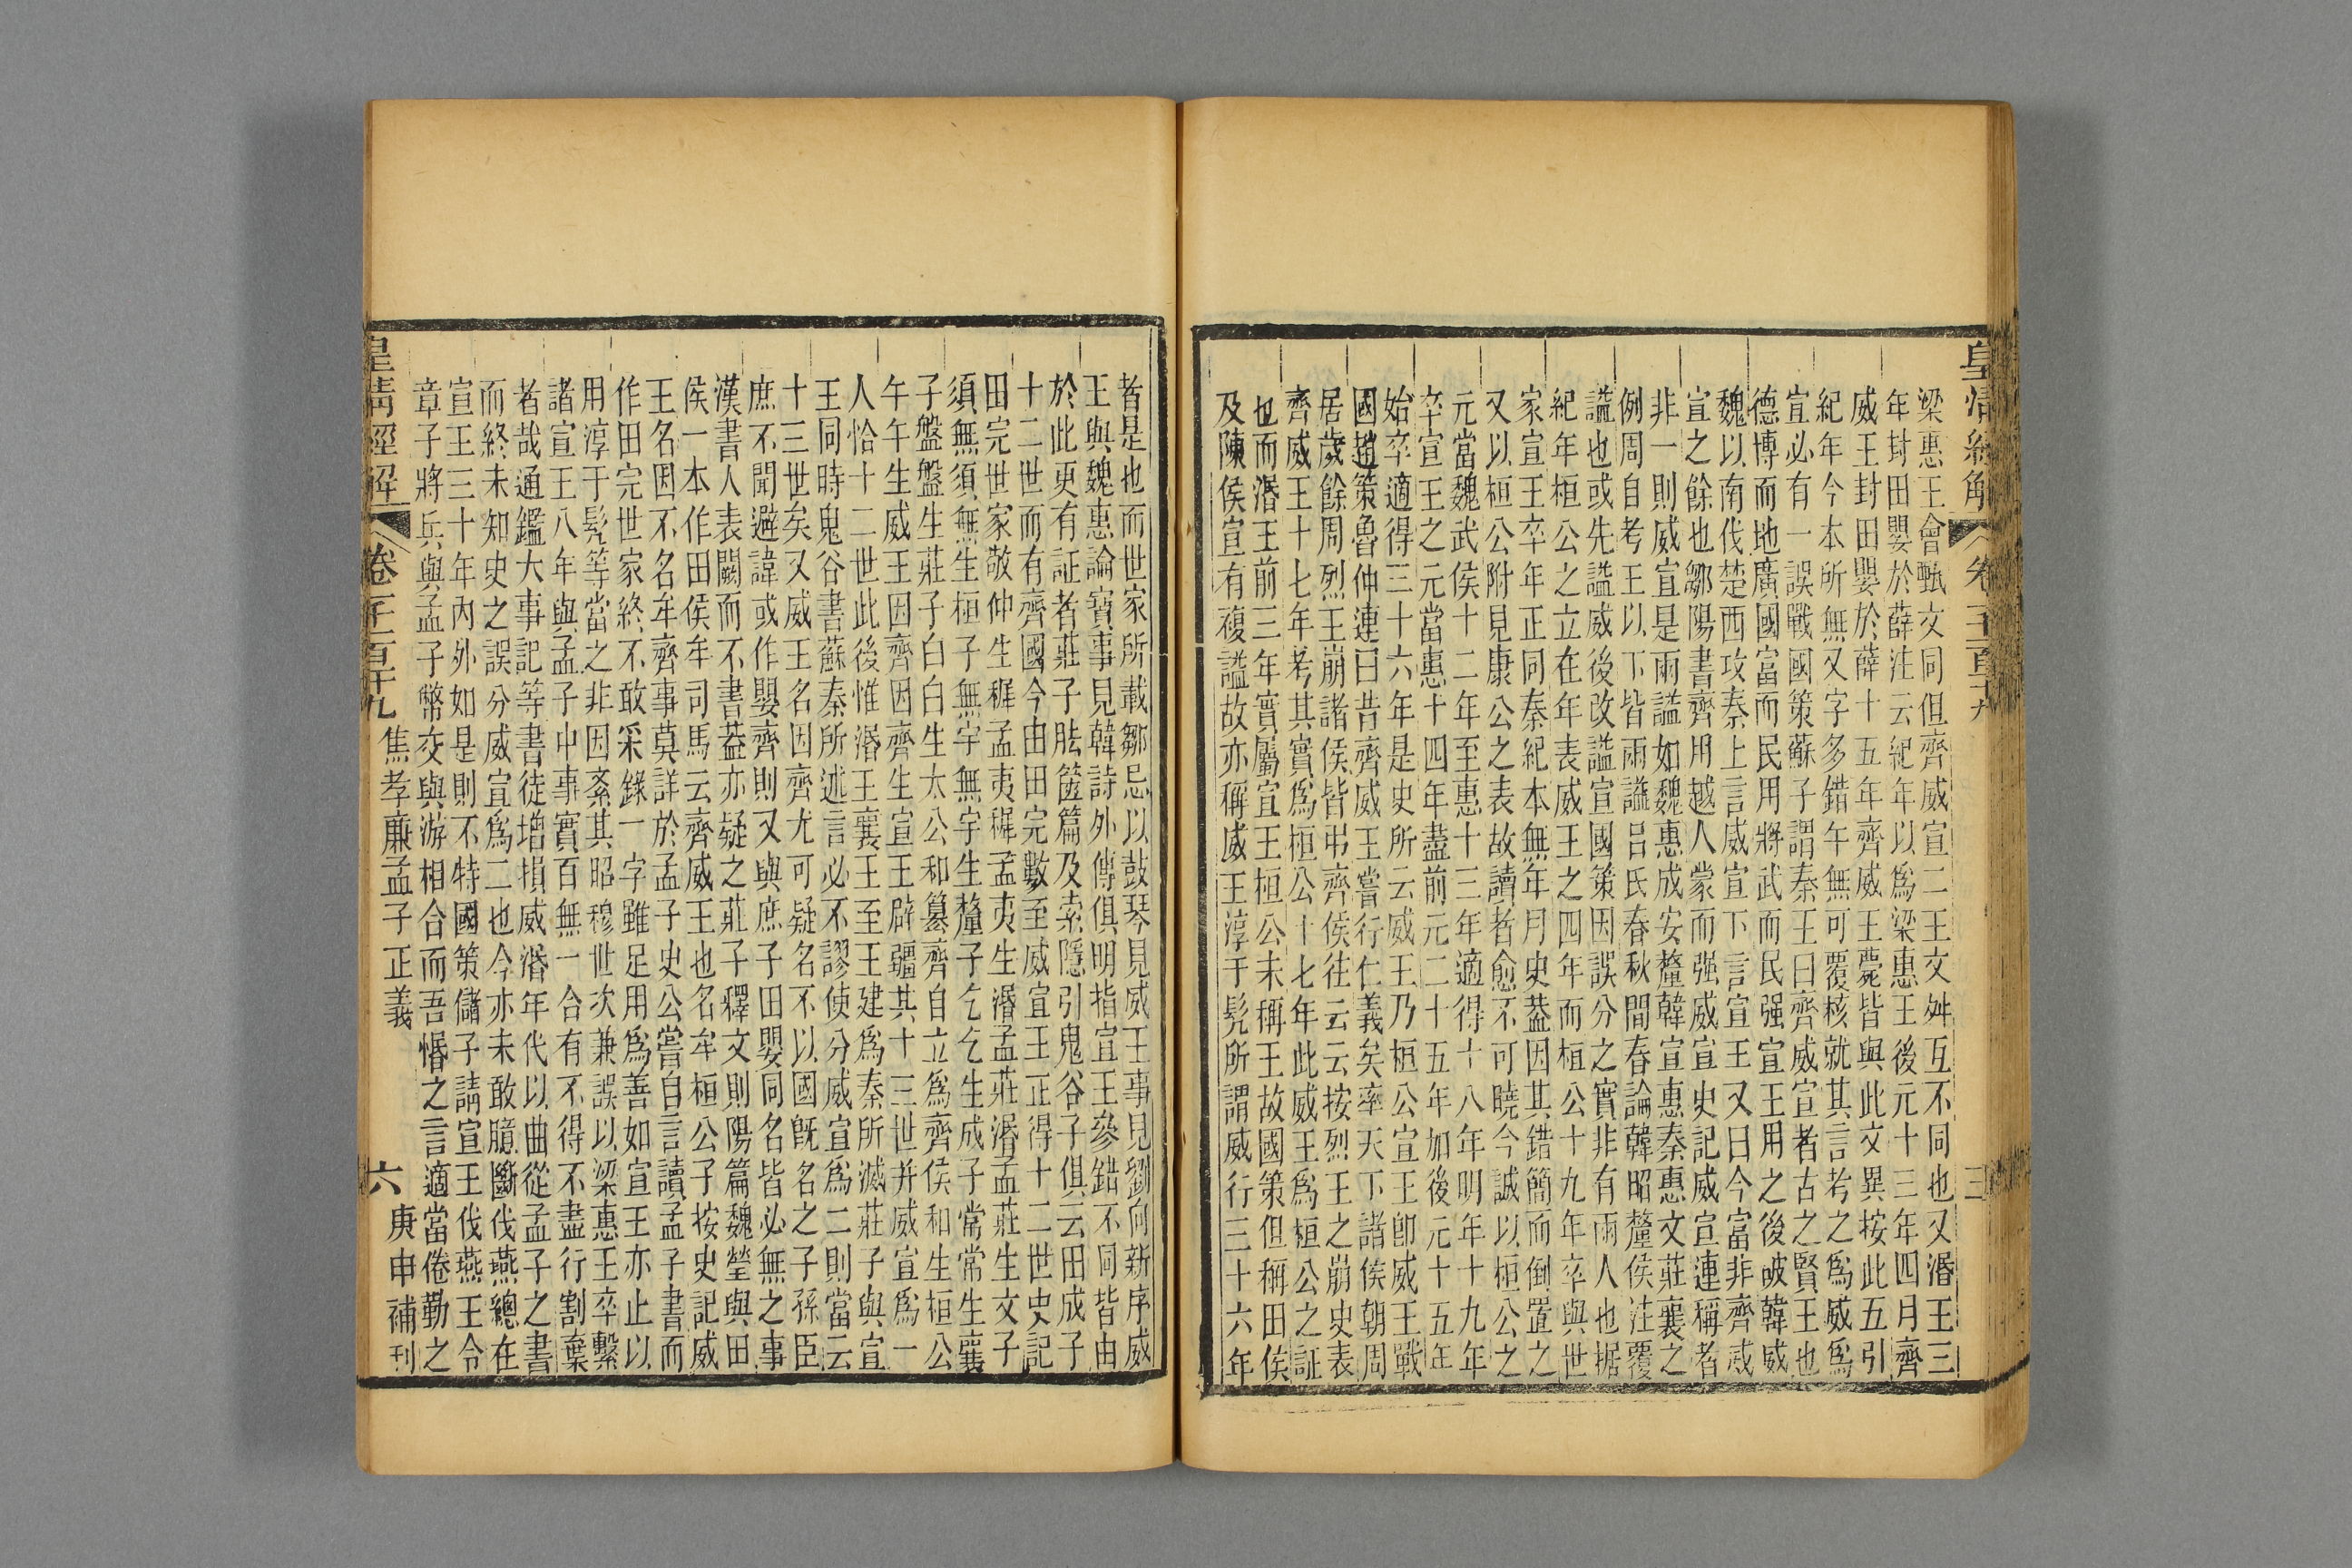 皇清經解
卷一千一百十九
三
梁惠王會甄文同但齊威宣二王文舛互不同也又湣王三
年封田嬰於薛注云紀年以爲梁惠王後元十三年四月齊
威王封田嬰於薛十五年齊威王薨皆與此文異按此五引
紀年今本所無又字多錯午無可覆核就其言考之爲威爲
宣必有一誤戰國策蘇子謂秦王曰齊威宣者古之賢王也
德博而地廣國富而民用將武而民强宣王用之後破韓威
魏以南伐楚西攻秦上言威宣下言宣王又曰今富非齊威
宣之餘也鄒陽書齊用越人蒙而强威宣史記威宣連稱者
非一則威宣是兩謚如魏惠成安釐韓宣惠秦惠文莊襄之
例周自考王以下皆兩謚呂氏春秋間春論韓昭釐侯注覆
謚也或先謚威後改謚宣國策因誤分之實非有兩人也据
紀年桓公之立在年表威王之四年而桓公十九年卒與世
家宣王卒年正同秦紀本無年月史葢因其錯簡而倒置之
又以桓公附見康公之表故讀者愈不可曉今誠以桓公之
元當魏武侯十二年至惠十三年適得十八年明年十九年
卒宣王之元當惠十四年盡前元二十五年加後元十五年
始卒適得三十六年是史所云威王乃桓公宣王卽威王戰
國趙策魯仲連曰昔齊威王嘗行仁義矣率天下諸侯朝周
居歲餘周烈王崩諸侯皆弔齊侯往云云按烈王之崩史表
齊威王十七年考其實爲桓公十七年此威王爲桓公之証
也而湣王前三年實屬宣王桓公未稱王故國策但稱田侯
及陳侯宣有複謚故亦稱威王淳于髡所謂威行三十六年
者是也而世家所載鄒忌以鼓琴見威王事見劉向新序威
王與魏惠論寳事見韓詩外傳俱明指宣王參錯不同皆由
於此更有証者莊子胠篋篇及索隱引鬼谷子俱云田成子
十二世而有齊國今由田完數至威宣王正得十二世史記
田完世家敬仲生穉孟夷穉孟夷生湣孟莊湣孟莊生文子
須無須無生桓子無宇無宇生釐子乞乞生成子常常生襄
子盤盤生莊子白白生太公和簒齊自立爲齊侯和生桓公
午午生威王因齊因齊生宣王辟疆其十三世并威宣爲一
人恰十二世此後惟湣王襄王至王建爲秦所滅莊子與宣
王同時鬼谷書蘇秦所述言必不謬使分威宣爲二則當云
十三世矣又威王名因齊尤可疑名不以國旣名之子孫臣
庶不聞避諱或作嬰齊則又與庶子田嬰同名皆必無之事
漢書人表闕而不書葢亦疑之莊子釋文則陽篇魏瑩與田
侯一本作田侯牟司馬云齊威王也名牟桓公子按史記威
王名因不名牟齊事莫詳於孟子史公嘗自言讀孟子書而
作田完世家終不敢采錄一字雖足用爲善如宣王亦止以
用淳于髡等當之非因紊其昭穆世次兼誤以梁惠王卒繫
諸宣王八年與孟子中事實百無一合有不得不盡行割棄
者哉通鑑大事記等書徒增損威湣年代以曲從孟子之書
而終未知史之誤分威宣爲二也今亦未敢臆斷伐燕總在
宣王三十年內外如是則不特國策儲子請宣王伐燕王令
章子將兵與孟子幣交與游相合而吾惛之言適當倦勤之
皇清經解
卷一千一百十九
焦孝廉孟子正義
六
庚申補刊